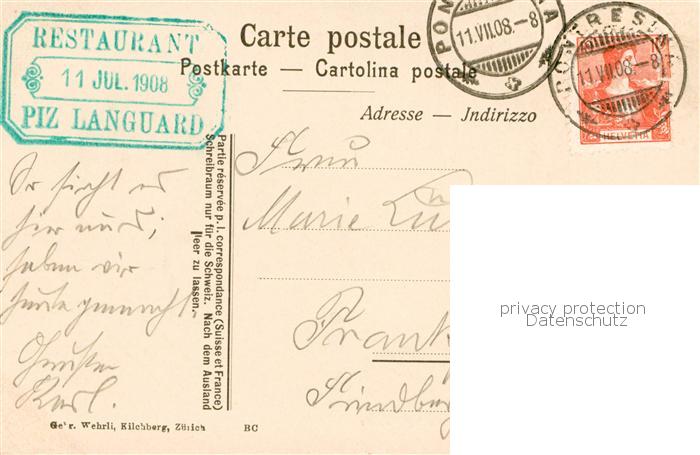 RESTAURANT
11 JUL. 1908
PIZ LANGUARD
Carte postale
Postkarte — Cartolina postale
Adresse — Indirizzo
PONTRESINA
11.VII.08.–8
PONTRESINA
11.VII.08.–8
HELVETIA
Partie réservée p. l. correspondance (Suisse et France)
Schreibraum nur für die Schweiz. Nach dem Ausland
leer zu lassen.
Frau
Marie
Frank
So sieht es
hier aus;
haben wir
heute gemacht
Karl.
Gebr. Wehrli, Kilchberg, Zürich
BC
privacy protection
Datenschutz